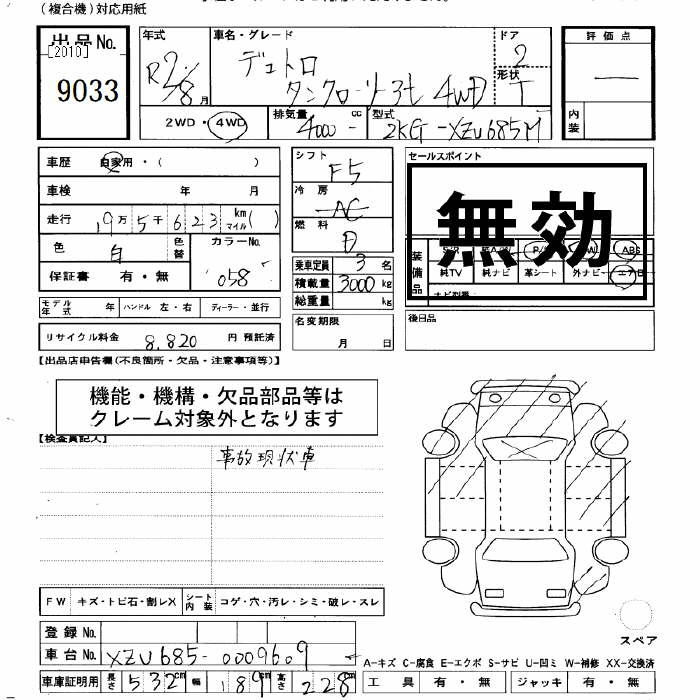 (複合機)対応用紙
出品No.
[2010]
9033
年式
R2/8月
車名・グレード
デュトロ
タンクローリー3t 4WD
ドア
2
形状
T
評価点
—
内装
2WD・4WD
排気量
4000 cc
型式
2KG-XZU685M
車歴 自家用・( )
車検 年 月
走行 19万5千623 km マイル( )
色 白 色替 カラーNo. 058
保証書 有・無
モデル年式 年 ハンドル 左・右 ディーラー・並行
リサイクル料金 8,820 円 預託済
シフト F5
冷房 AC
燃料 D
乗車定員 3名
積載量 3000 kg
総重量 kg
名変期限
月 日
セールスポイント
無効
装備品 ABS
純TV 純ナビ 革シート 外ナビ エアB
後日品
【出品店申告欄(不良箇所・欠品・注意事項等)】
機能・機構・欠品部品等は
クレーム対象外となります
【検査員記入】
事故現状車
FW キズ・トビ石・割レX シート内装 コゲ・穴・汚レ・シミ・破レ・スレ
スペア
登録No.
車台No. XZU685-0009609
車庫証明用 長さ 532cm 幅 189cm 高さ 228cm
A-キズ C-腐食 E-エクボ S-サビ U-凹ミ W-補修 XX-交換済
工具 有・無 ジャッキ 有・無